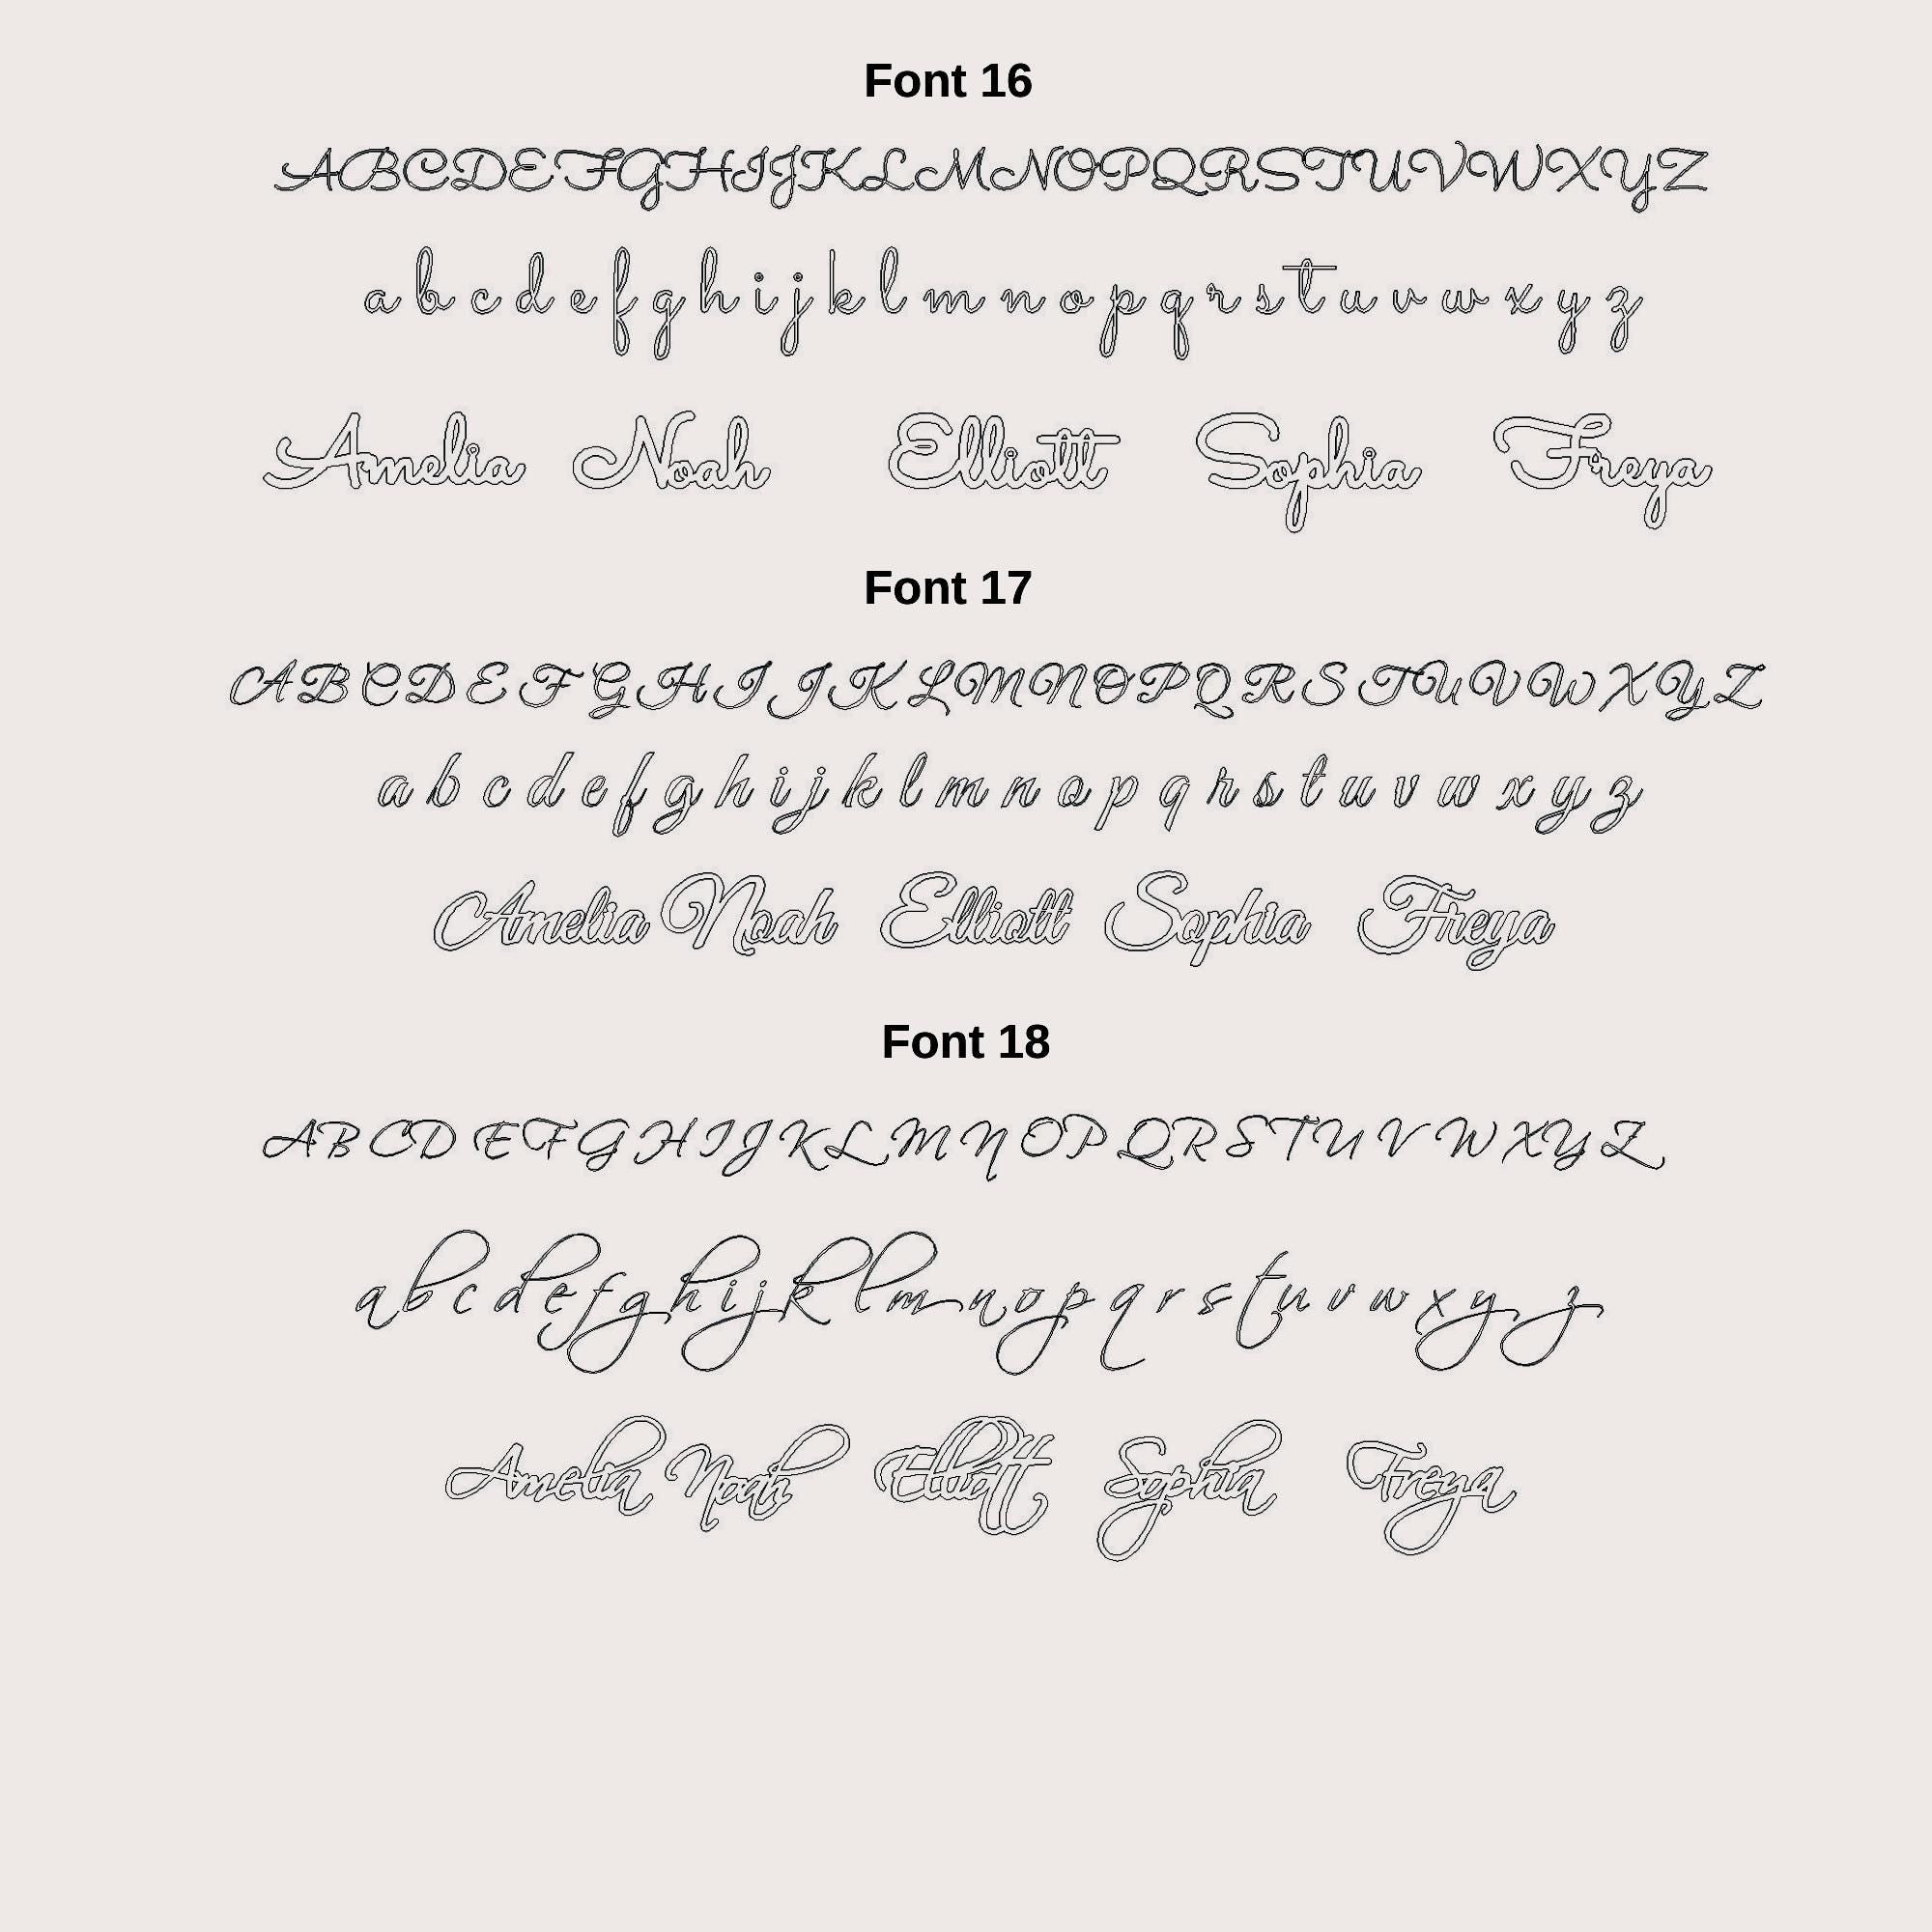 Font 16
ABCDEFGHIJKLMNOPQRSTUVWXYZ
a b c d e f g h i j k l m n o p q r s t u v w x y z
Amelia Noah Elliott Sophia Freya
Font 17
ABCDEFGHIJKLMNOPQRSTUVWXYZ
a b c d e f g h i j k l m n o p q r s t u v w x y z
Amelia Noah Elliott Sophia Freya
Font 18
ABCDEFGHIJKLMNOPQRSTUVWXYZ
a b c d e f g h i j k l m n o p q r s t u v w x y z
Amelia Noah Elliott Sophia Freya